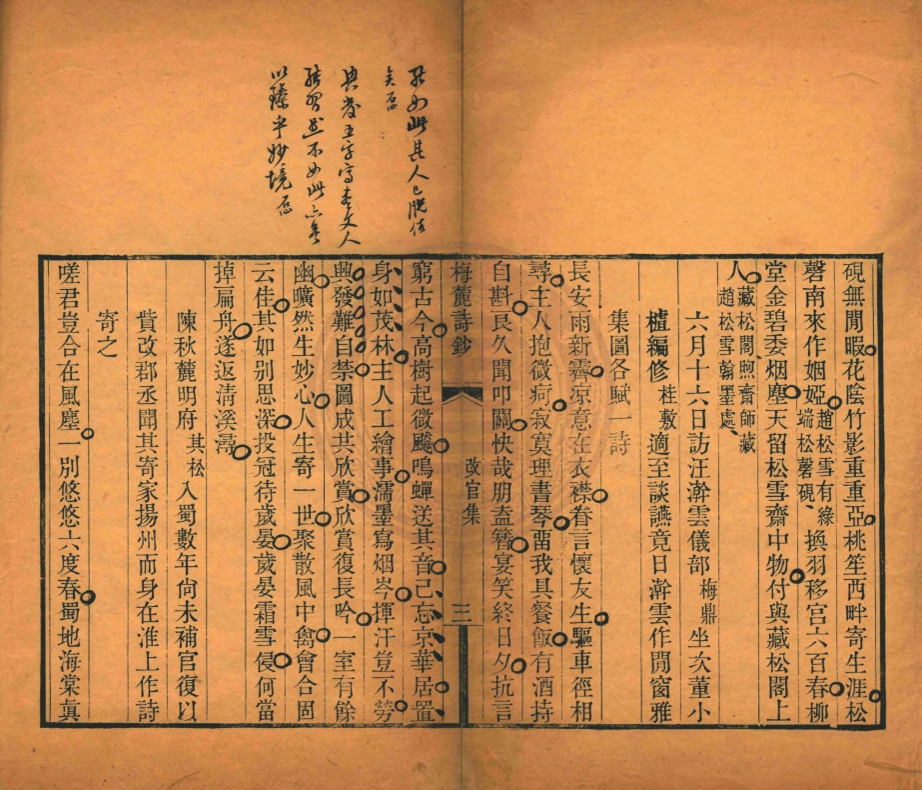 硯無閒暇花陰竹影重重亞桃笙西畔寄生涯松
磬南來作姻婭趙松雪有綠端松磬硯換羽移宮六百春柳
堂金碧委烟塵天留松雪齋中物付與藏松閣上
人藏松閣煦齋師藏趙松雪翰墨處
六月十六日訪汪澣雲儀部梅鼎坐次董小
槎編修桂敷適至談讌竟日澣雲作閒窗雅
集圖各賦一詩
長安雨新霽凉意在衣襟眷言懷友生驅車徑相
尋主人抱微疴寂寞理書琴畱我具餐飯有酒持
自斟良久聞叩關快哉朋盍簪宴笑終日夕抗言
梅麓詩鈔
改官集
三
窮古今高樹起微飈鳴蟬送其音已忘京華居置
身如茂林主人工繪事濡墨寫烟岑揮汗豈不勞
興發難自禁圖成共欣賞欣賞復長吟一室有餘
幽曠然生妙心人生寄一世聚散風中禽會合固
云佳其如别思深投冠待歲晏歲晏霜雪侵何當
掉扁舟遂返淸溪潯
陳秋麓明府其松入蜀數年尙未補官復以
貲改郡丞聞其寄家揚州而身在淮上作詩
寄之
嗟君豈合在風塵一別悠悠六度春蜀地海棠眞
能如此其人已脫俗
矣
興發五字寫盡文人
結習然不如此亦無
以臻乎妙境